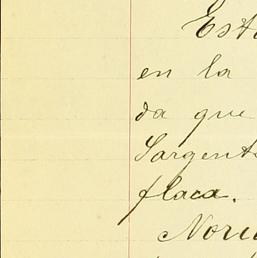 Est
en la
da que
Sargent
flaca.
Nori